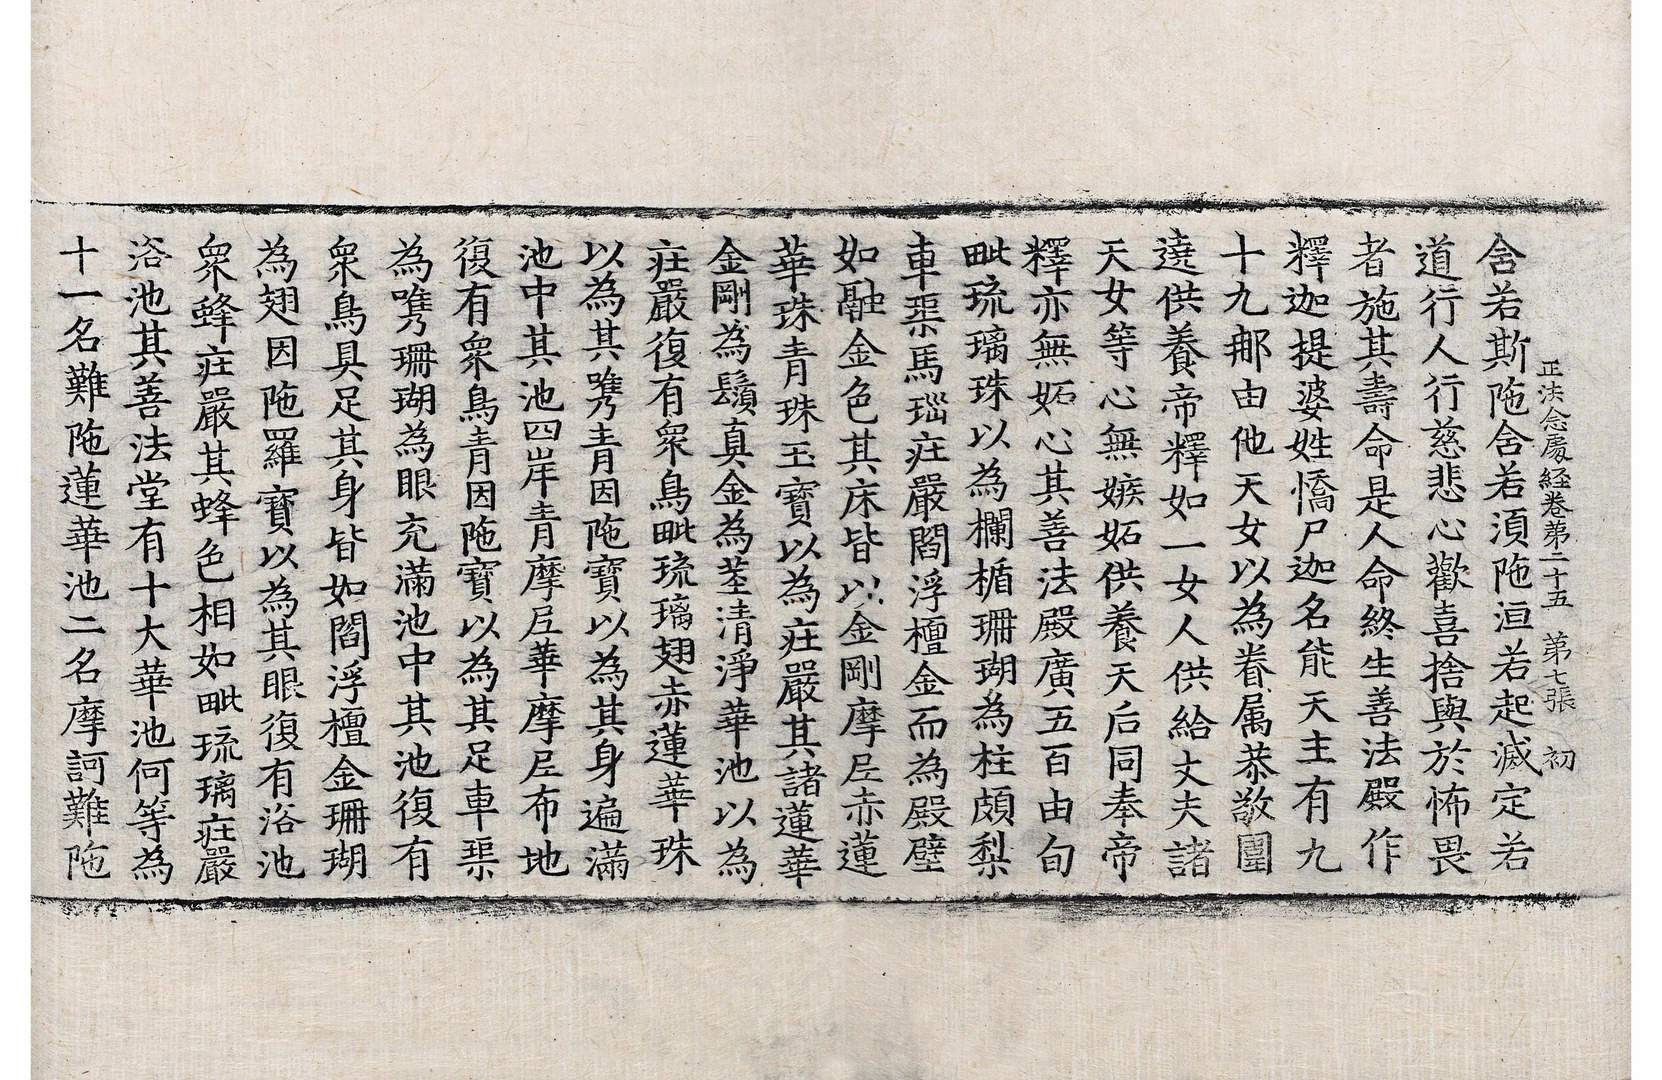 正法念處経卷第二十五 第七張 初
含若斯陁含若湏陁洹若起滅定若
道行人行慈悲心歡喜捨與於怖畏
者施其壽命是人命終生善法殿作
釋迦提婆姓憍尸迦名能天主有九
十九那由他天女以為眷属恭敬圍
遶供養帝釋如一女人供給丈夫諸
天女等心無嫉妬供養天后同奉帝
釋亦無妬心其善法殿廣五百由旬
毗琉璃珠以為欄楯珊瑚為柱頗梨
車𤦲馬瑙莊嚴閻浮檀金而為殿壁
如融金色其床皆以金剛摩尼赤蓮
華珠青珠玉寶以為莊嚴其諸蓮華
金剛為鬚真金為茎清淨華池以為
莊嚴復有衆鳥毗琉璃翅赤蓮華珠
以為其㗾青因陁寶以為其身遍滿
池中其池四岸青摩尼華摩尼布地
復有衆鳥青因陁寶以為其足車𤦲
為㗾珊瑚為眼充滿池中其池復有
衆鳥具足其身皆如閻浮檀金珊瑚
為翅因陁羅寶以為其眼復有浴池
衆蜂莊嚴其蜂色相如毗琉璃莊嚴
浴池其善法堂有十大華池何等為
十一名難陁蓮華池二名摩訶難陁